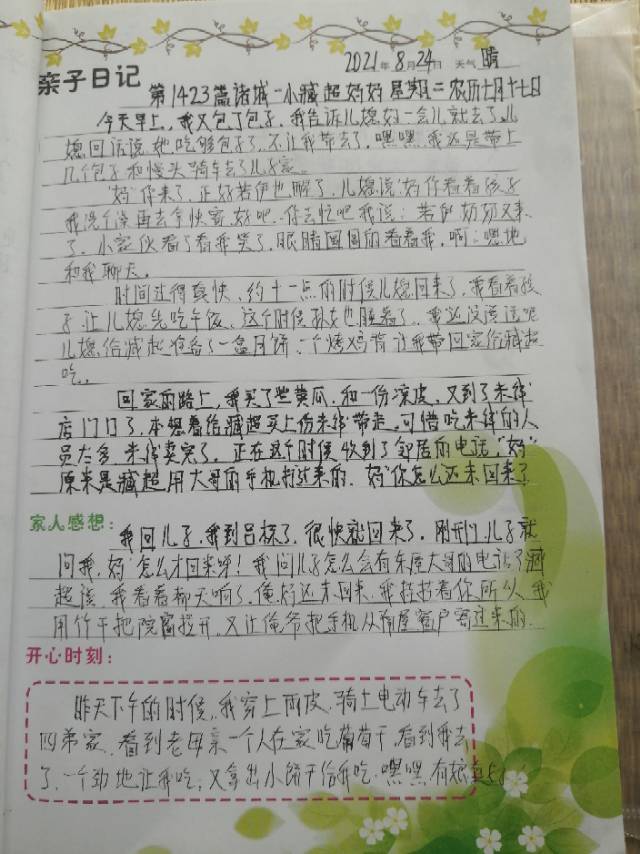 亲子日记
2021年8月24日 天气 晴
第1423篇诸城一小臧超妈妈 星期二 农历七月十七日
今天早上,我又包了包子,我告诉儿媳妇一会儿就去了,儿
媳回话说她吃够包子了,不让我带去了,嘿嘿,我还是带上
几个包子和馒头骑车去了儿子家。
"妈"你来了,正好若伊也醒了,儿媳说"妈你看着孩子
我洗个澡再去拿快寄,好吧,你去忙吧我说:若伊奶奶又来
了,小家伙看了看我笑了,眼睛圆圆的看着我,啊:嗯地
和我聊天。
时间过得真快,约十一点的时候儿媳回来了,我看着孩
子,让儿媳先吃午饭,这个时候孙女也睡着了,我还没说说呢
儿媳给臧超准备了一盒月饼,一个烤鸡背让我带回家给臧超
吃,
回家的路上,我买了些黄瓜,和一份凉皮,又到了米线
店门口了,本想着给臧超买上份米线带走,可惜吃米线的人
员太多,米线卖完了,正在这个时候收到了邻居的电话,"妈"
原来是臧超用大哥的手机打过来的,妈"你怎么还未回来了
家人感想:
我回儿子,我到吕标了,很快就回来了,刚刚儿子就
问我,妈"怎么才回来呀!我问儿子怎么会有东屋大哥的电话了臧
超说,我看着都天响了,俺妈还未回来,我挂挂着你,所以,我
用竹干把院窗拉开,又让俺爷把手机从前屋窗户寄过来的.
开心时刻:
昨天下午的时候,我穿上雨皮,骑上电动车去了
四弟家,看到老母亲一个人在家吃葡萄干,看到我去
了,一个劲地让我吃,又拿出小饼干给我吃,嘿嘿,有娘真